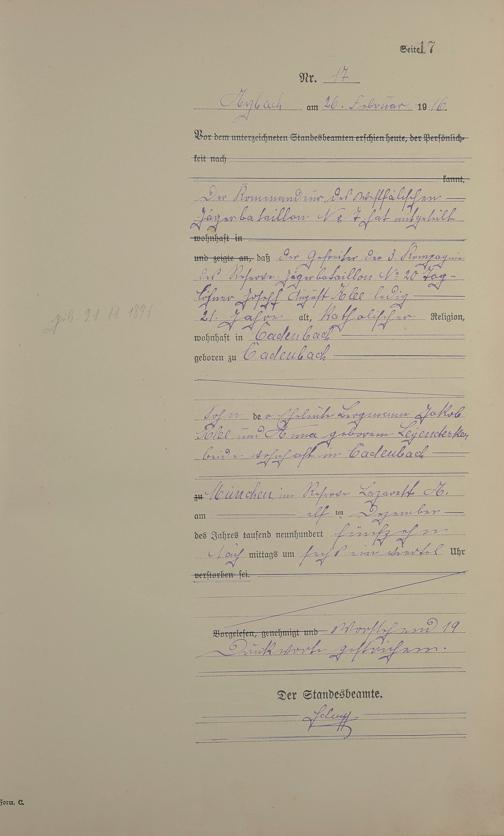 Seite 17
Nr. 17
Arzbach am 26. Februar 1916.
Vor dem unterzeichneten Standesbeamten erschien heute, der Persönlich-
keit nach
kannt,
Der Kommandeur des Westfälischen
Jägerbataillon No 7 hat mitgeteilt
wohnhaft in
und zeigte an, daß der Gefreiter der 3. Kompagnie
des Reserve Jägerbataillon No 20 Tag-
löhner Joseph August Klee ledig
21 Jahre alt, katholischer Religion,
wohnhaft in Cadenbach
geboren zu Cadenbach
Sohn der Eheleute Bergmann Jakob
Klee und Anna geborene
beide wohnhaft in Cadenbach
zu München im Reserve Lazarett A.
am elf ten Dezember
des Jahres tausend neunhundert fünfzehn
Nach mittags um sechs ein viertel Uhr
verstorben sei.
Vorgelesen, genehmigt und Vorstehend 19
Druckworte gestrichen.
Der Standesbeamte.
Form. C.